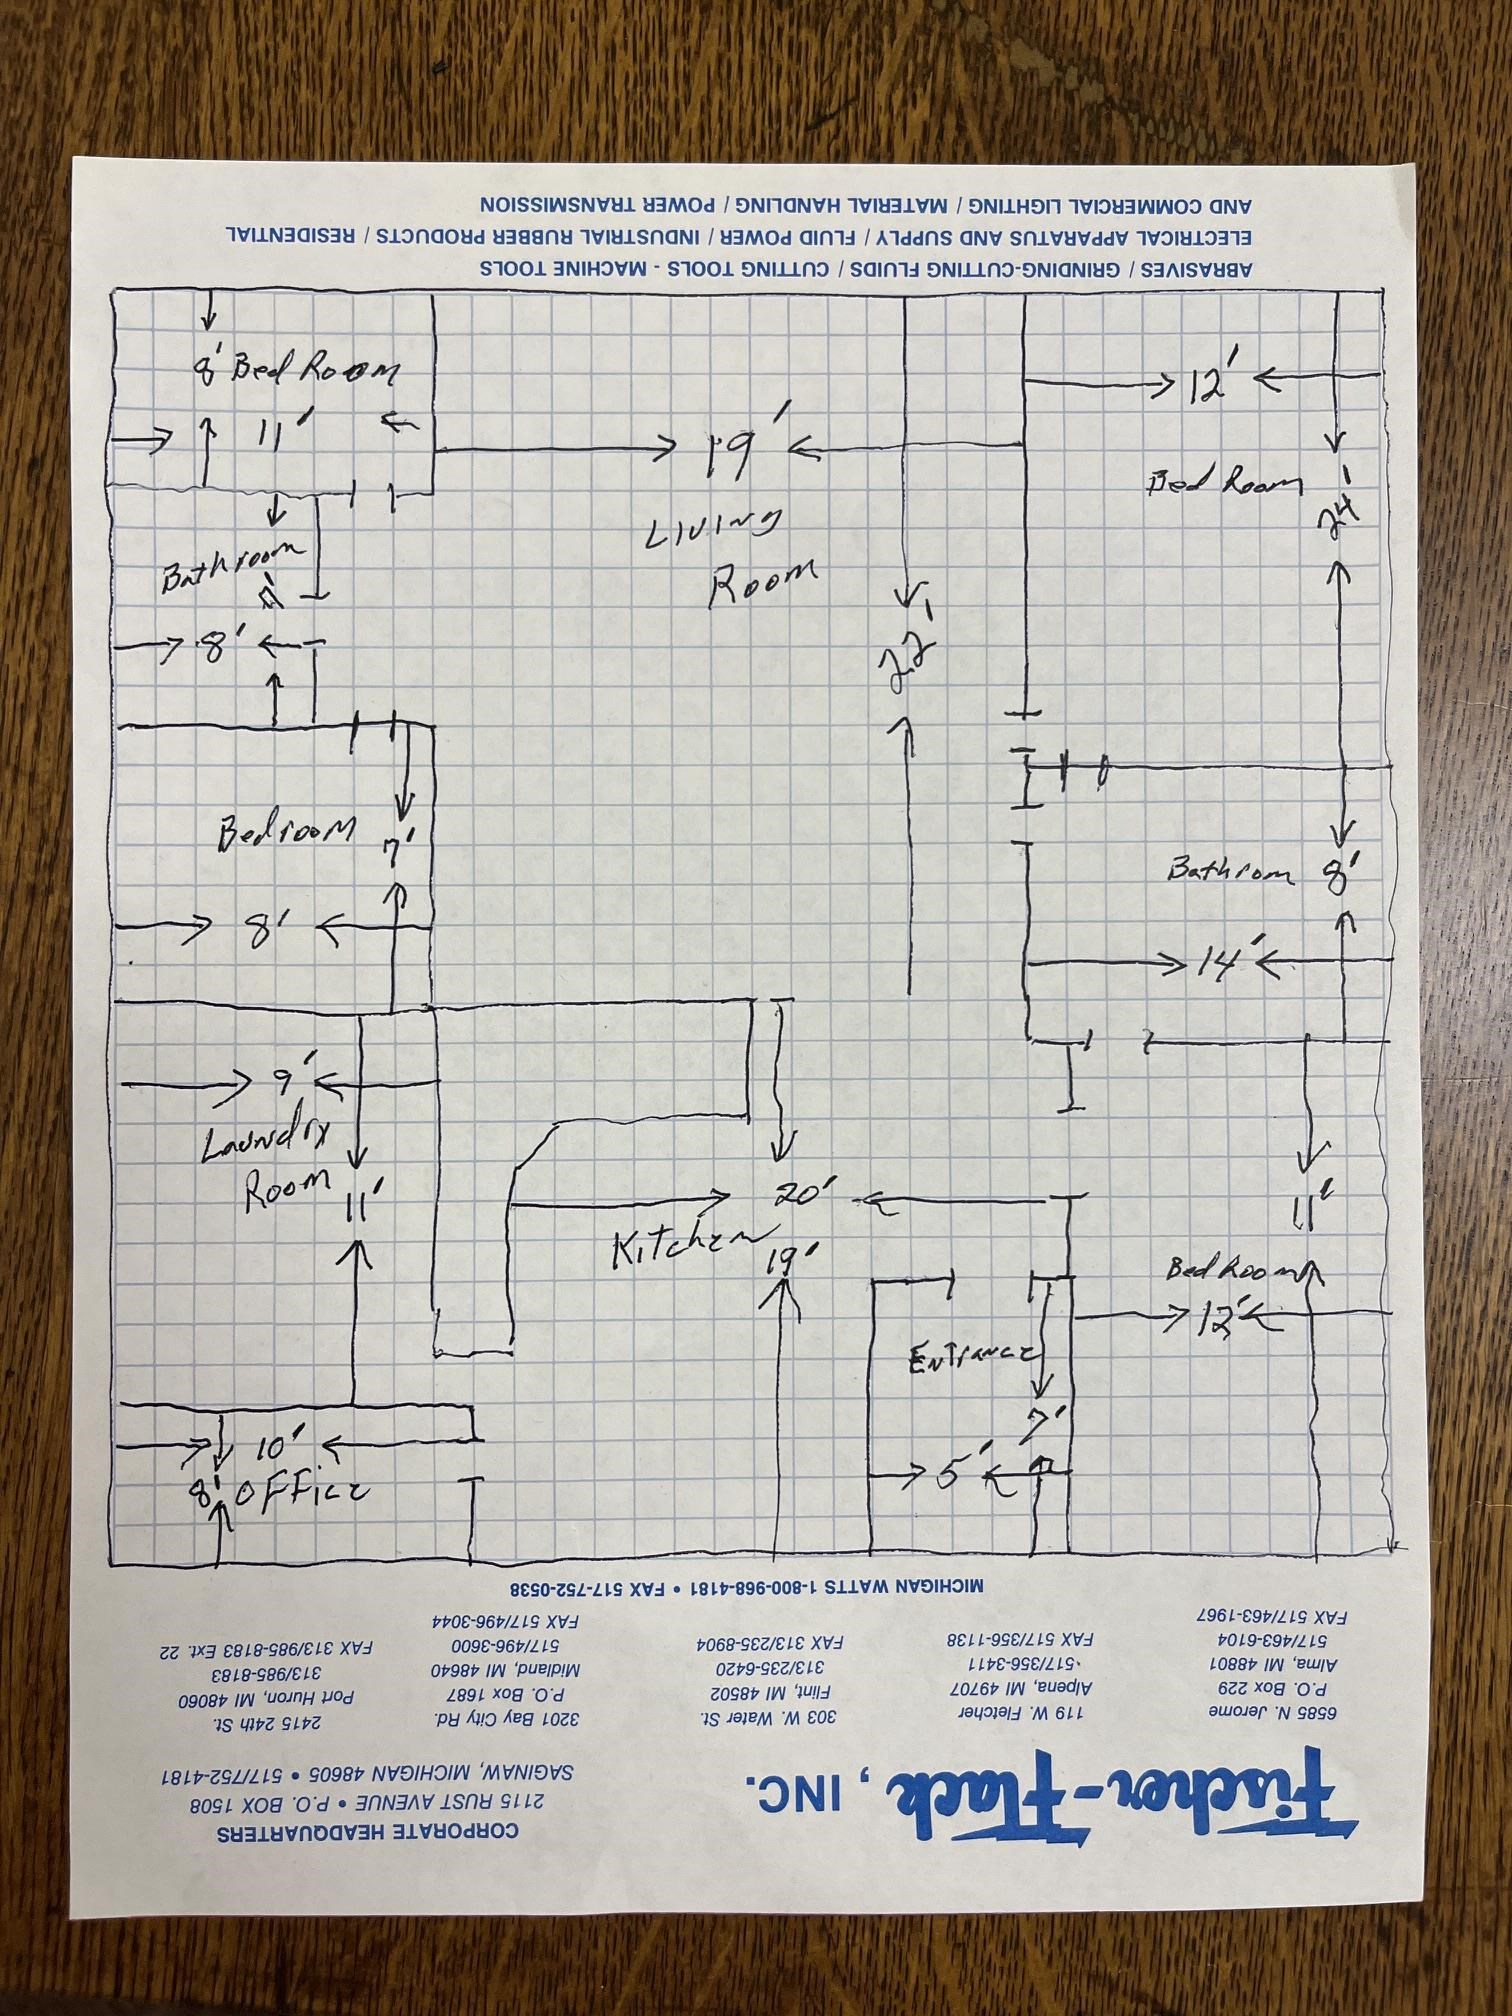 AND COMMERCIAL LIGHTING / MATERIAL HANDLING / POWER TRANSMISSION
ELECTRICAL APPARATUS AND SUPPLY / FLUID POWER / INDUSTRIAL RUBBER PRODUCTS / RESIDENTIAL
ABRASIVES / GRINDING-CUTTING FLUIDS / CUTTING TOOLS - MACHINE TOOLS
8' Bed Room
11'
19'
Living
Room
22'
12'
Bed Room
24'
Bathroom
8'
Bedroom
7'
8'
Bathroom 8'
14'
9'
Laundry
Room
11'
20'
Kitchen
19'
11'
Bed Room
12'
Entrance
7'
5'
10'
8' Office
MICHIGAN WATTS 1-800-968-4181 • FAX 517-752-0538
6585 N. Jerome
P.O. Box 229
Alma, MI 48801
517/463-6104
FAX 517/463-1967
119 W. Fletcher
Alpena, MI 49707
517/356-3411
FAX 517/356-1138
303 W. Water St.
Flint, MI 48502
313/235-6420
FAX 313/235-8904
3201 Bay City Rd.
P.O. Box 1687
Midland, MI 48640
517/496-3600
FAX 517/496-3044
2415 24th St.
Port Huron, MI 48060
313/985-8183
FAX 313/985-8183 Ext. 22
Fischer-Flack, INC.
CORPORATE HEADQUARTERS
2115 RUST AVENUE • P.O. BOX 1508
SAGINAW, MICHIGAN 48605 • 517/752-4181